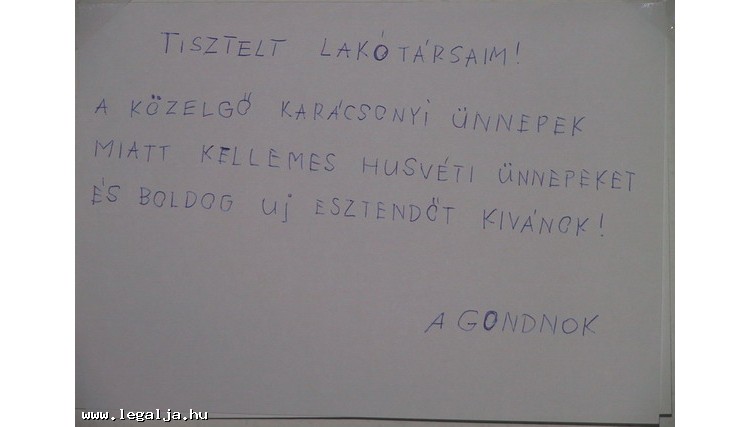 TISZTELT LAKÓTÁRSAIM!
A KÖZELGŐ KARÁCSONYI ÜNNEPEK
MIATT KELLEMES HUSVÉTI ÜNNEPEKET
ÉS BOLDOG Uj ESZTENDŐT KIVÁNOK!
A GONDNOK
www.legalja.hu